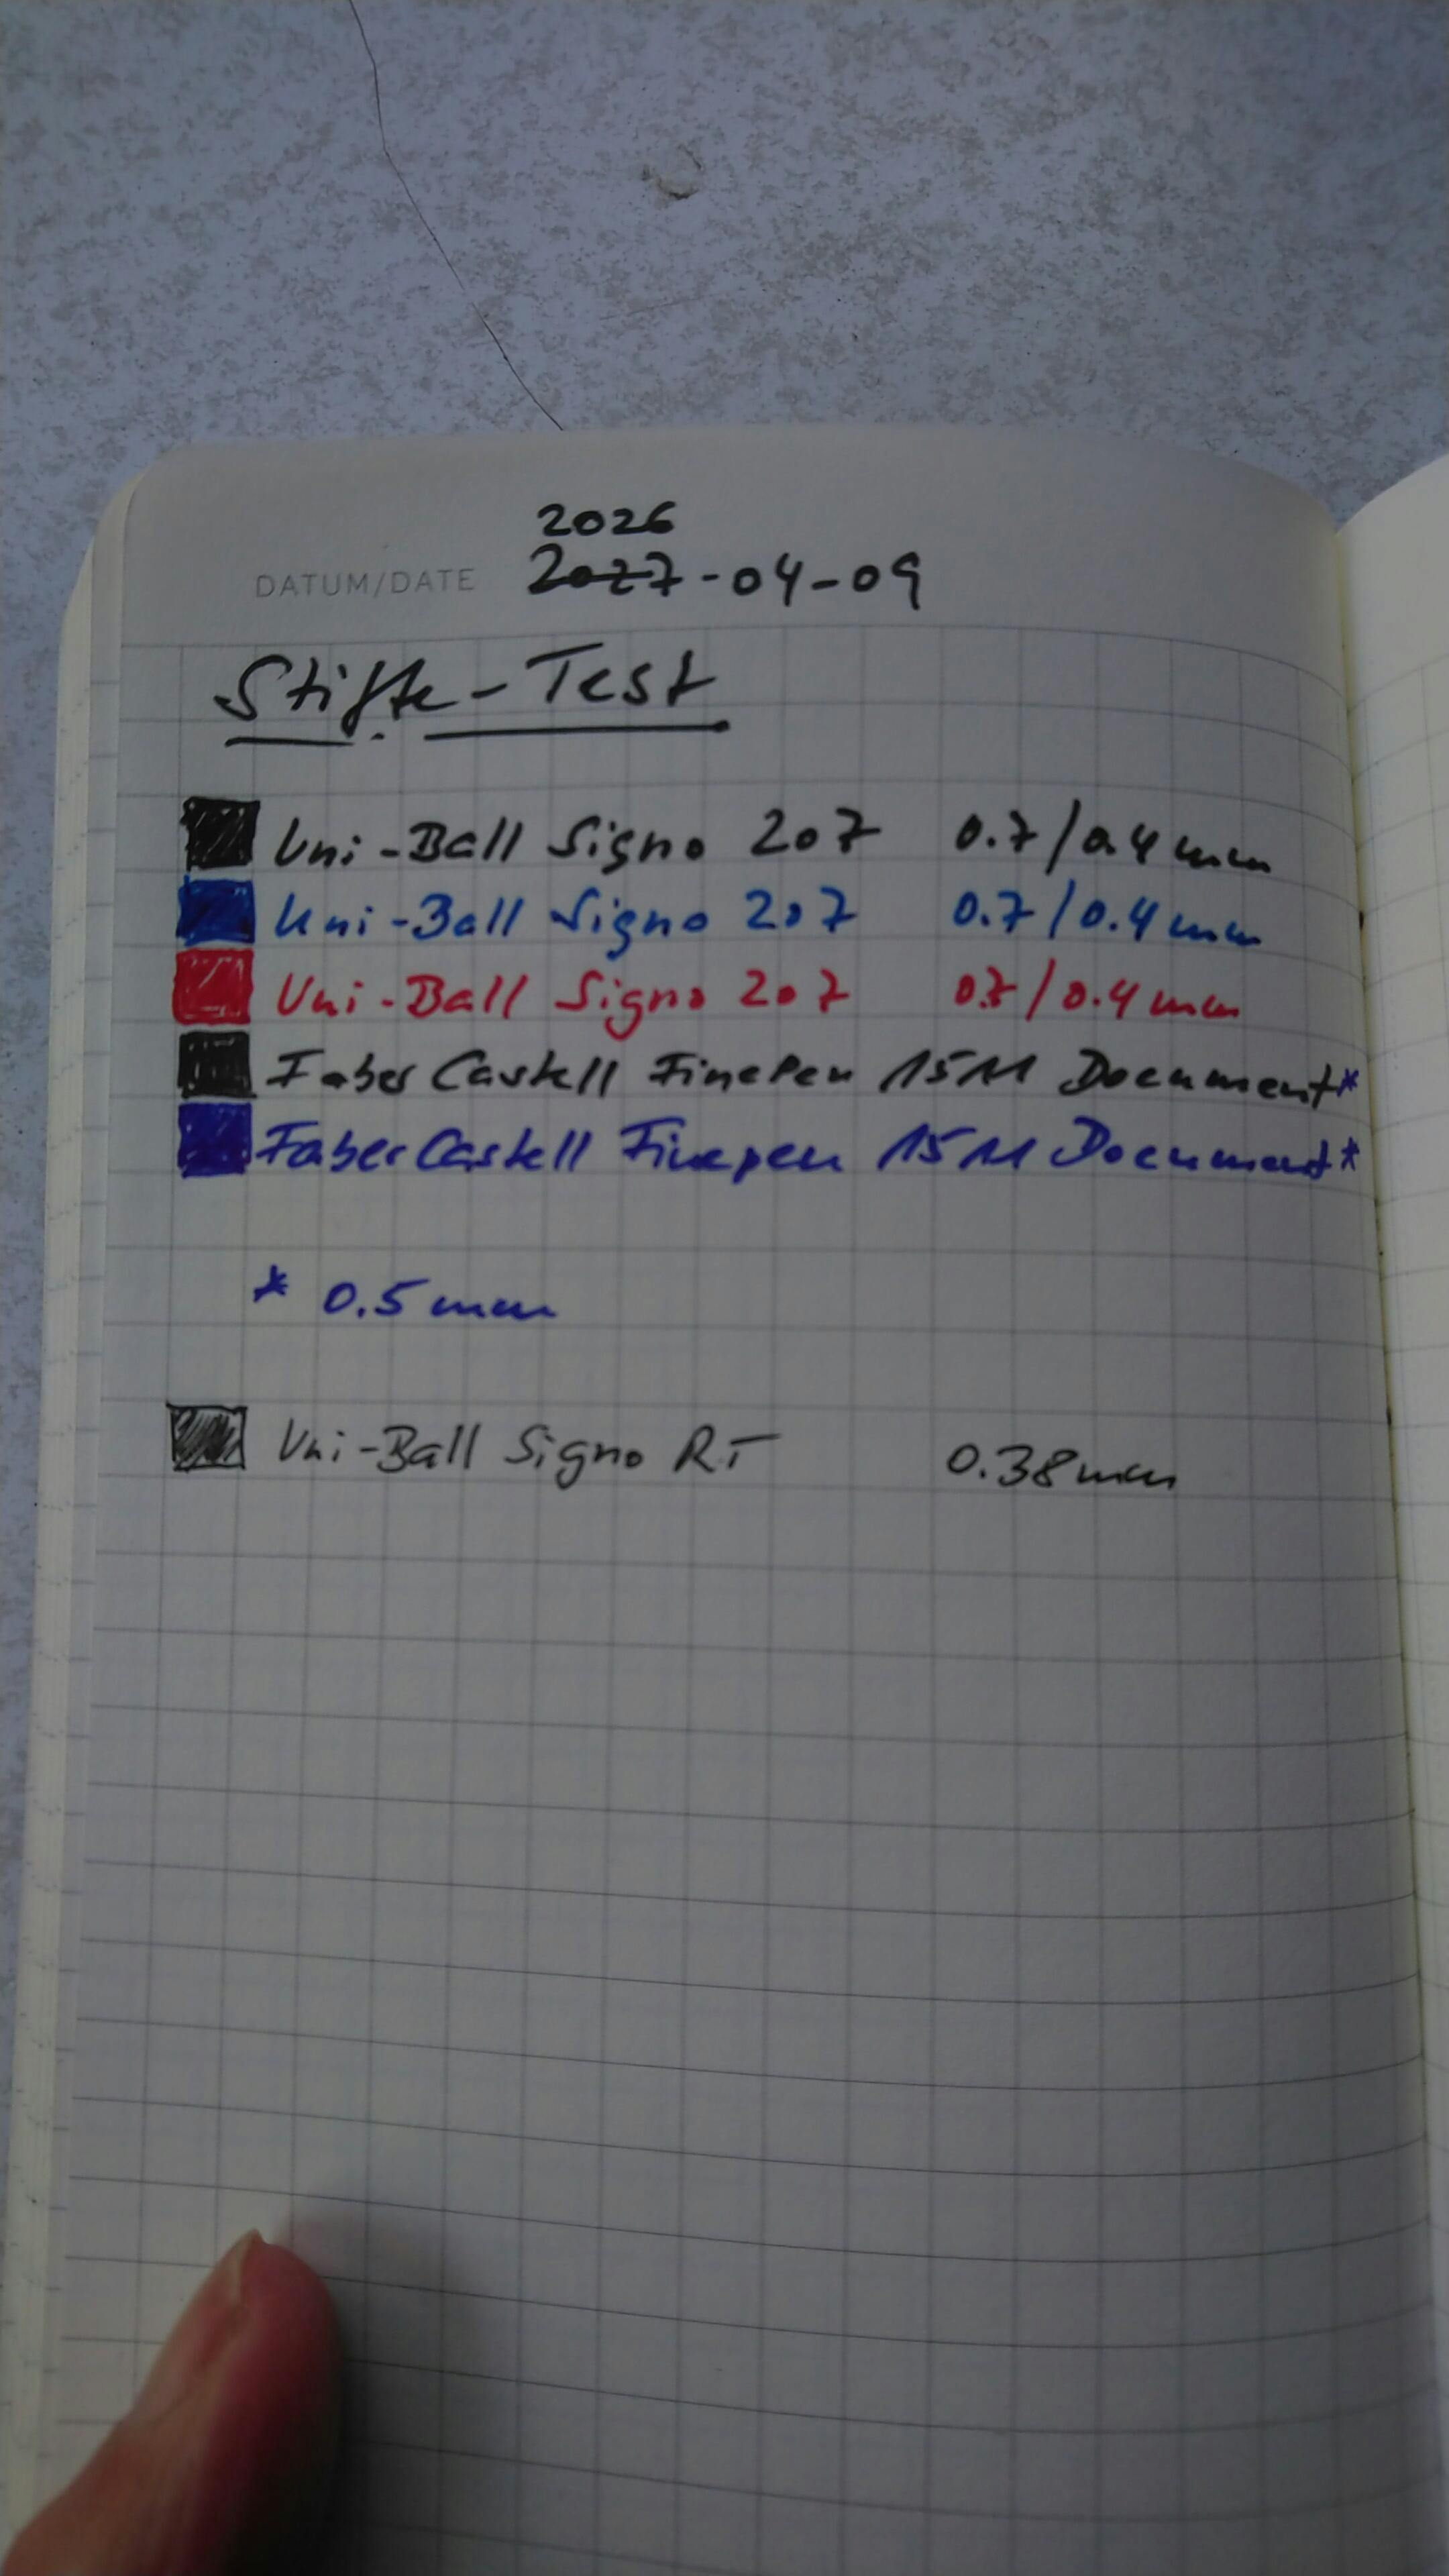 2026
DATUM/DATE 2027-04-09
Stifte-Test
Uni-Ball Signo 207 0.7/0.4mm
Uni-Ball Signo 207 0.7/0.4mm
Uni-Ball Signo 207 0.7/0.4mm
Faber Castell FinePen 1511 Document*
Faber Castell Finepen 1511 Document*
* 0.5mm
Uni-Ball Signo RT 0.38mm